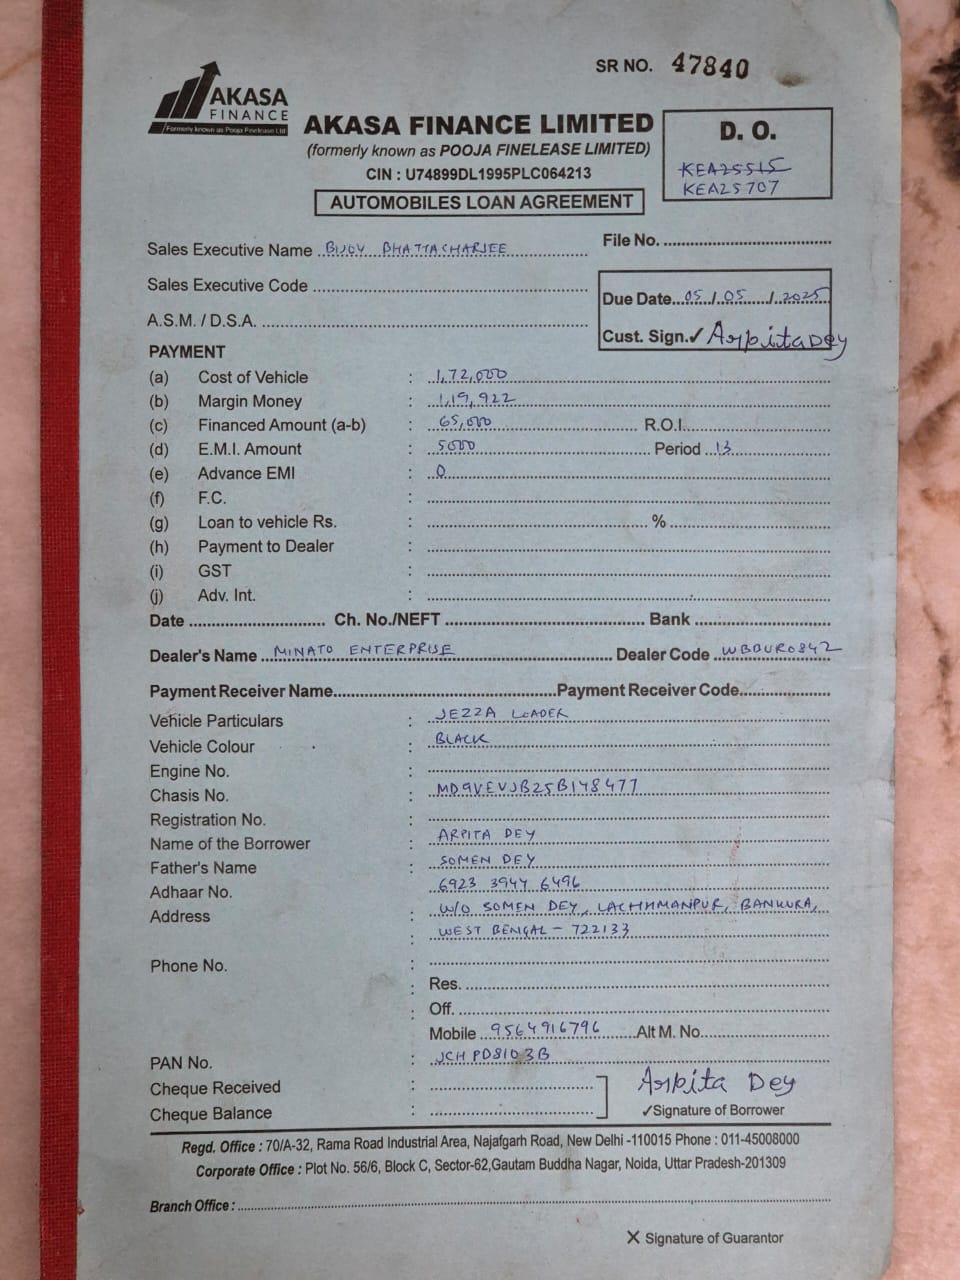 SR NO. 47840
AKASA
FINANCE
Formerly known as Pooja Finelease Ltd
AKASA FINANCE LIMITED
(formerly known as POOJA FINELEASE LIMITED)
CIN : U74899DL1995PLC064213
AUTOMOBILES LOAN AGREEMENT
D. O.
KEA25515
KEA25707
Sales Executive Name BIJOY BHATTACHARJEE
File No.
Sales Executive Code
Due Date 05/05/2025
A.S.M. / D.S.A.
Cust. Sign.✓ Arpita Dey
PAYMENT
(a) Cost of Vehicle : 1,72,000
(b) Margin Money : 1,19,922
(c) Financed Amount (a-b) : 65,000 R.O.I.
(d) E.M.I. Amount : 5000 Period 13
(e) Advance EMI : 0
(f) F.C. :
(g) Loan to vehicle Rs. : %
(h) Payment to Dealer :
(i) GST :
(j) Adv. Int. :
Date Ch. No./NEFT Bank
Dealer's Name MINATO ENTERPRISE Dealer Code WBBUR0842
Payment Receiver Name Payment Receiver Code
Vehicle Particulars : JEZZA LOADER
Vehicle Colour : BLACK
Engine No. :
Chasis No. : MD9VEVJB25B148477
Registration No. :
Name of the Borrower : ARPITA DEY
Father's Name : SOMEN DEY
Adhaar No. : 6923 3944 6496
Address : W/O SOMEN DEY, LACHHMANPUR, BANKURA,
: WEST BENGAL - 722133
Phone No. :
: Res.
: Off.
Mobile 9564916796 Alt M. No.
PAN No. : JCHPD8103B
Cheque Received :
Cheque Balance :
Arpita Dey
✓Signature of Borrower
Regd. Office : 70/A-32, Rama Road Industrial Area, Najafgarh Road, New Delhi -110015 Phone : 011-45008000
Corporate Office : Plot No. 56/6, Block C, Sector-62,Gautam Buddha Nagar, Noida, Uttar Pradesh-201309
Branch Office :
X Signature of Guarantor